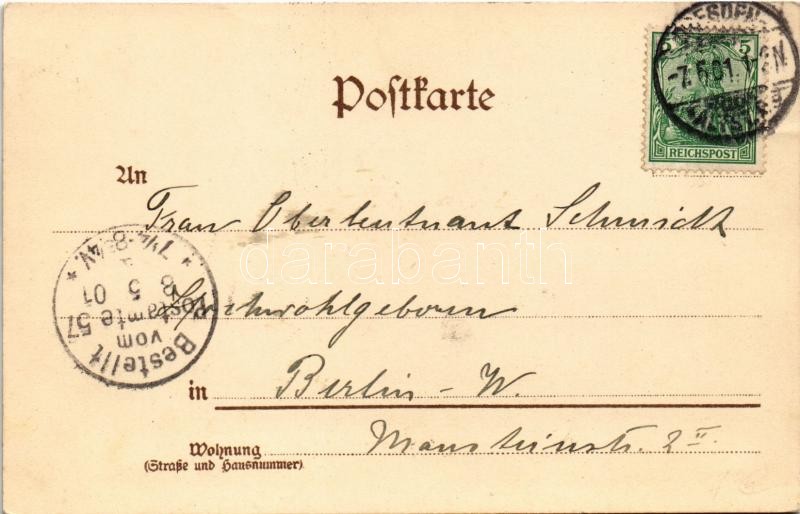 Postkarte
DRESDEN-
-7.5.01.1-2N
ALTST.
5 5
REICHSPOST
An
Frau Oberleutnant Schmidt
Hochwohlgeboren
in Berlin - W.
Mansteinstr. 2 II
Wohnung
(Straße und Hausnummer)
Bestellt
vom
Postamte 57
8 5 01
7¼-8¼V.
darabanth